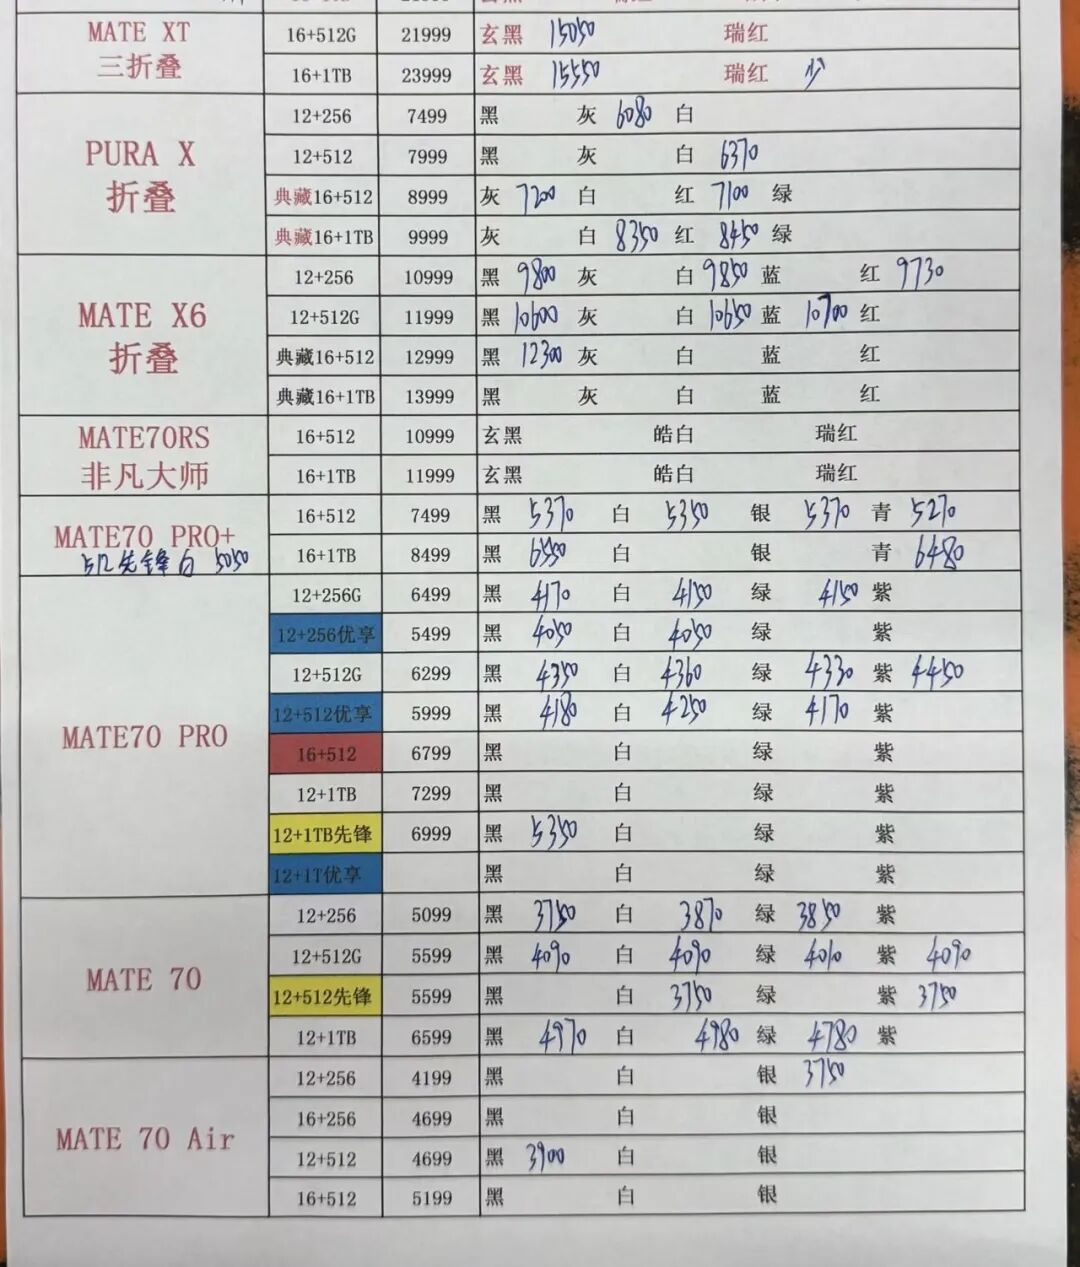 MATE XT
三折叠
16+512G 21999 玄黑 15050 瑞红
16+1TB 23999 玄黑 15550 瑞红 少
PURA X
折叠
12+256 7499 黑 灰 6080 白
12+512 7999 黑 灰 白 6370
典藏16+512 8999 灰 7200 白 红 7100 绿
典藏16+1TB 9999 灰 白 8350 红 8450 绿
MATE X6
折叠
12+256 10999 黑 9800 灰 白 9850 蓝 红 9730
12+512G 11999 黑 10600 灰 白 10650 蓝 10700 红
典藏16+512 12999 黑 12300 灰 白 蓝 红
典藏16+1TB 13999 黑 灰 白 蓝 红
MATE70RS
非凡大师
16+512 10999 玄黑 皓白 瑞红
16+1TB 11999 玄黑 皓白 瑞红
MATE70 PRO+
512先锋白 5050
16+512 7499 黑 5370 白 5350 银 5370 青 5270
16+1TB 8499 黑 6550 白 银 青 6480
MATE70 PRO
12+256G 6499 黑 4170 白 4150 绿 4150 紫
12+256优享 5499 黑 4050 白 4050 绿 紫
12+512G 6299 黑 4350 白 4360 绿 4330 紫 4450
12+512优享 5999 黑 4180 白 4250 绿 4170 紫
16+512 6799 黑 白 绿 紫
12+1TB 7299 黑 白 绿 紫
12+1TB先锋 6999 黑 5350 白 绿 紫
12+1T优享 黑 白 绿 紫
MATE 70
12+256 5099 黑 3750 白 3870 绿 3850 紫
12+512G 5599 黑 4090 白 4090 绿 4010 紫 4090
12+512先锋 5599 黑 白 3750 绿 紫 3750
12+1TB 6599 黑 4970 白 4980 绿 4780 紫
MATE 70 Air
12+256 4199 黑 白 银 3750
16+256 4699 黑 白 银
12+512 4699 黑 3900 白 银
16+512 5199 黑 白 银